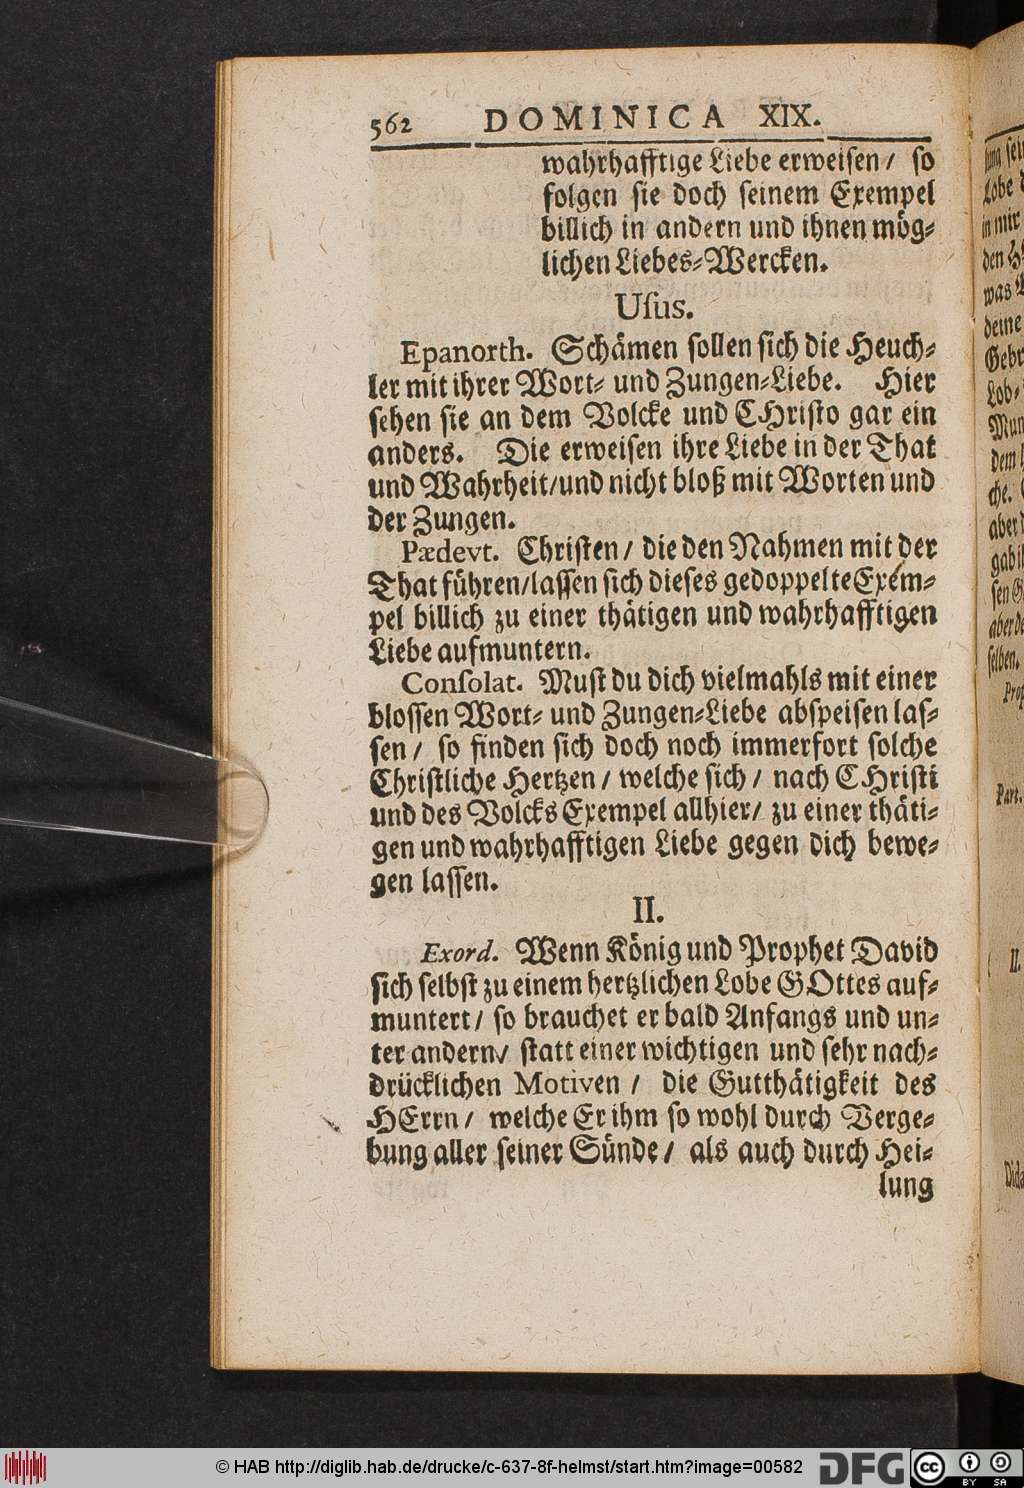 562 DOMINICA XIX.
wahrhafftige Liebe erweisen / so
folgen sie doch seinem Exempel
billich in andern und ihnen mög⸗
lichen Liebes⸗Wercken.
Uſus.
Epanorth. Schämen sollen sich die Heuch⸗
ler mit ihrer Wort⸗ und Zungen⸗Liebe. Hier
sehen sie an dem Volcke und CHristo gar ein
anders. Die erweisen ihre Liebe in der That
und Wahrheit / und nicht bloß mit Worten und
der Zungen.
Pædevt. Christen / die den Nahmen mit der
That führen / lassen sich dieses gedoppelte Exem⸗
pel billich zu einer thätigen und wahrhafftigen
Liebe aufmuntern.
Conſolat. Must du dich vielmahls mit einer
blossen Wort⸗ und Zungen⸗Liebe abspeisen las⸗
sen / so finden sich doch noch immerfort solche
Christliche Hertzen / welche sich / nach CHristi
und des Volcks Exempel allhier / zu einer thäti⸗
gen und wahrhafftigen Liebe gegen dich bewe⸗
gen lassen.
II.
Exord. Wenn König und Prophet David
sich selbst zu einem hertzlichen Lobe GOttes auf⸗
muntert / so brauchet er bald Anfangs und un⸗
ter andern / statt einer wichtigen und sehr nach⸗
drücklichen Motiven / die Gutthätigkeit des
HErrn / welche Er ihm so wohl durch Verge⸗
bung aller seiner Sünde / als auch durch Hei⸗
lung
© HAB http://diglib.hab.de/drucke/c-637-8f-helmst/start.htm?image=00582
DFG
cc BY SA